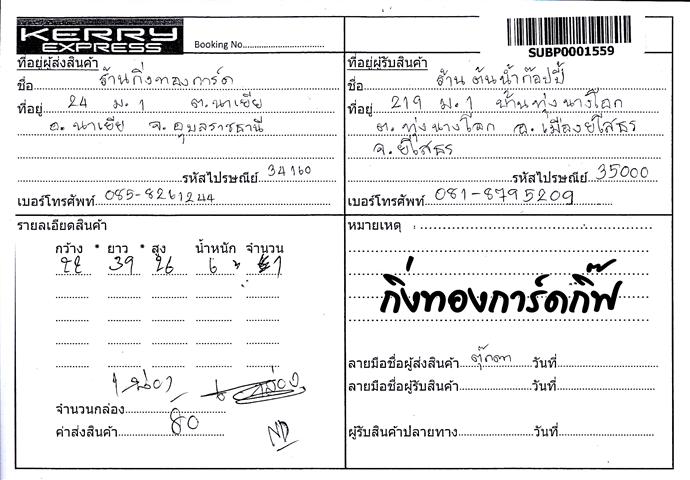 KERRY
EXPRESS
Booking No.
SUBP0001559
ที่อยู่ผู้ส่งสินค้า
ชื่อ ร้านกิ่งทองการ์ด
ที่อยู่ 24 ม.1 ต.นาเยีย
อ.นาเยีย จ.อุบลราชธานี
รหัสไปรษณีย์ 34160
เบอร์โทรศัพท์ 085-8261244
ที่อยู่ผู้รับสินค้า
ชื่อ ร้าน ต้นน้ำก๊อปปี้
ที่อยู่ 219 ม.1 บ้านทุ่งนางโอก
ต.ทุ่งนางโอก อ.เมืองยโสธร
จ.ยโสธร
รหัสไปรษณีย์ 35000
เบอร์โทรศัพท์ 081-8795209
รายละเอียดสินค้า
กว้าง * ยาว * สูง น้ำหนัก จำนวน
22 39 26 6 1
1 กล่อง
จำนวนกล่อง
ค่าส่งสินค้า 80
ND
หมายเหตุ :
กิ่งทองการ์ดกิ๊ฟ
ลายมือชื่อผู้ส่งสินค้า ตุ๊กตา วันที่
ลายมือชื่อผู้รับสินค้า วันที่
ผู้รับสินค้าปลายทาง วันที่